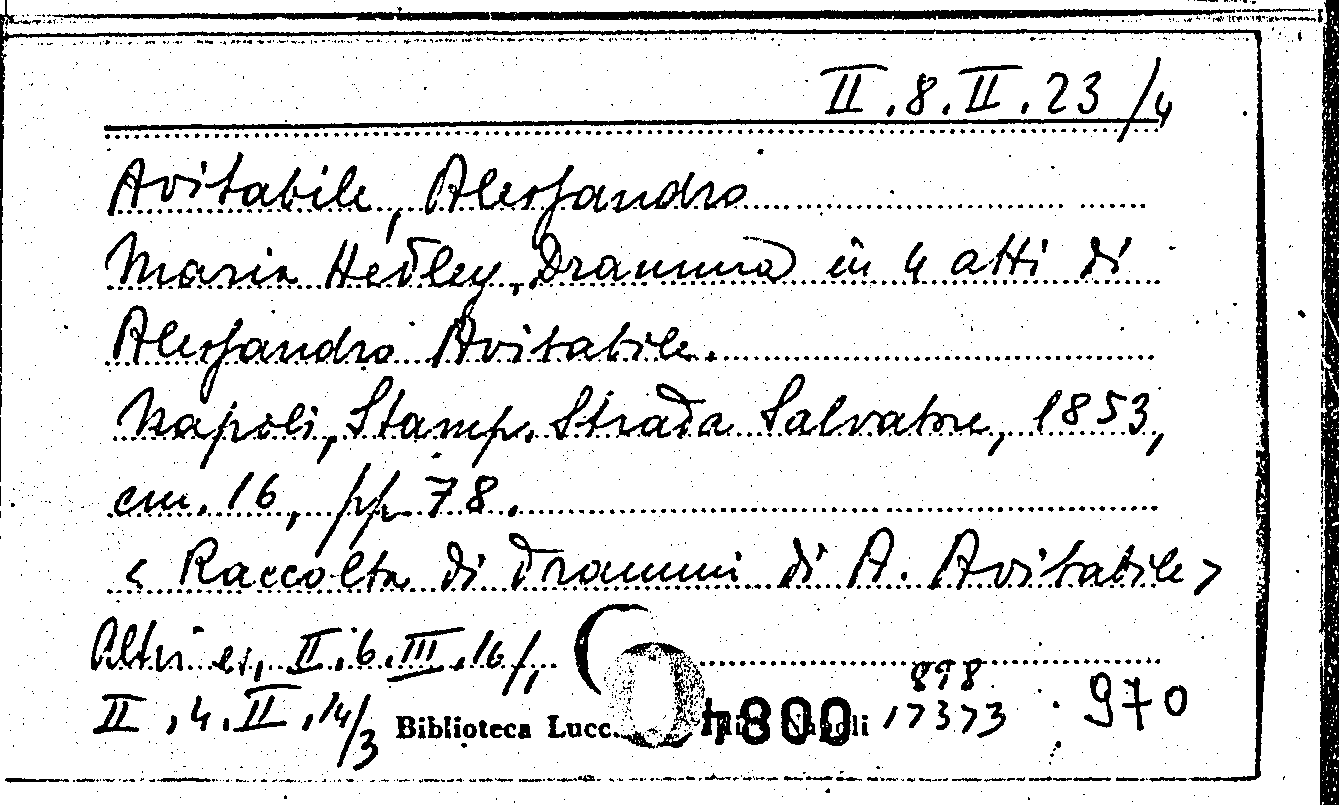 II.8.II.23/4
Avitabile, Alessandro
Maria Hedley, Dramma in 4 atti di
Alessandro Avitabile.
Napoli, Stamp. Strada Salvatore, 1853,
cm. 16, pp. 78.
< Raccolta di drammi di A. Avitabile >
Altri es. II.6.III.16/1
II.4.II.14/3
Biblioteca Lucc. Napoli
4800
898
17373
970